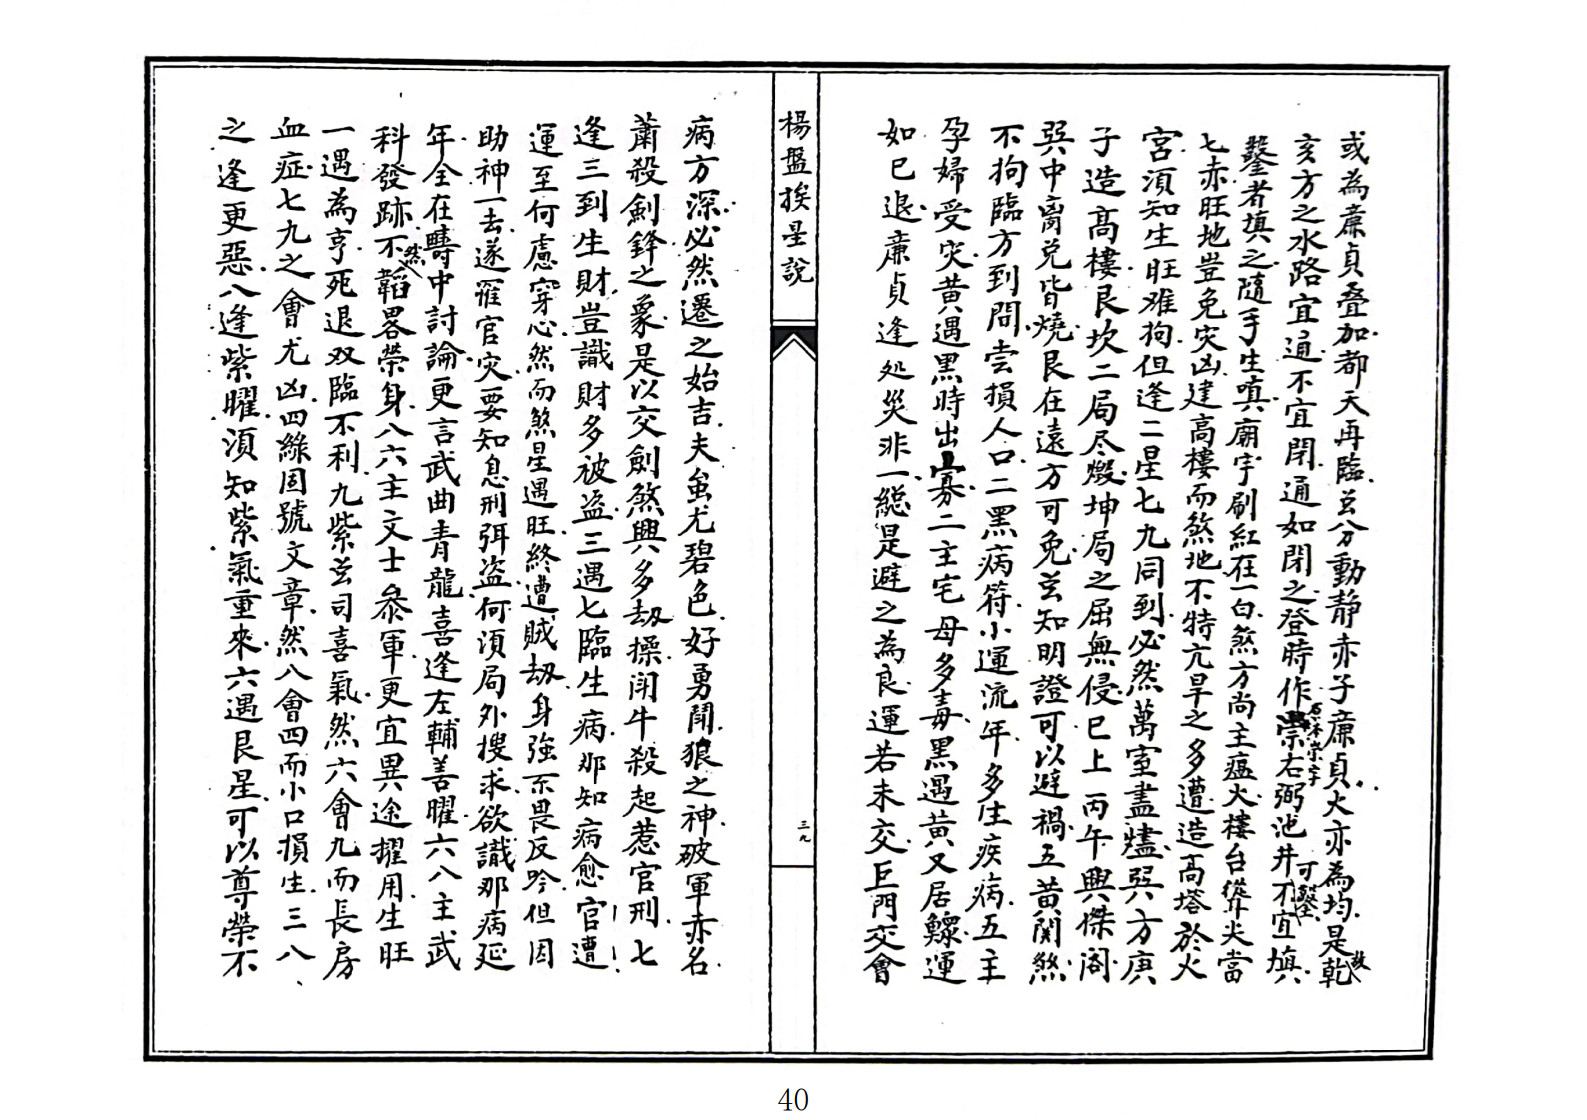 或為廉貞叠加都天再臨玄分動靜亦子廉貞大亦為均是乾
故
亥方之水路宜通不宜閉通如閉之登時作祟右弼池井不宜填
可鑿
鑿者填之隨手生嗔廟宇刷紅在一白煞方尚主瘟火樓台從介尖當
七赤旺地豈免灾凶建高樓而煞地不特亢旱之多遭造高塔於火
宮須知生旺难拘但逢二星七九同到必然萬室盡燼巽方庚
子造髙樓艮坎二局尽燬坤局之屈無侵巳上丙午興傑阁
巽中离兌皆燒艮在遠方可免玄知明證可以避禍五黄関煞
不拘臨方到間尝損人口二黑病符小運流年多生疾病五主
孕婦受灾黄遇黑時出寡二主宅母多毒黑遇黄又居鰥運
如巳退廉貞逢处災非一総是避之為良運若未交巨門交會
楊盤挨星說
三九
病方深必然遷之始吉夫蚩尤碧色好勇鬪狼之神破軍赤名
肅殺劍鋒之象是以交劍煞興多劫操闭牛殺起惹官刑七
逢三到生財豈識財多被盗三遇七臨生病那知病愈官遭
運至何慮穿心然而煞星遇旺終遭賊劫身強不畏反吟但因
助神一去遂罹官灾要知息刑弭盗何湏局外搜求欲識那病延
年全在疇中討論更言武曲青龍喜逢左輔善曜六八主武
科發跡不韜畧榮身八六主文士叅軍更宜異途擢用生旺
然
一遇為亨死退双臨不利九紫玄司喜氣然六會九而長房
血症七九之會尤凶四綠固號文章然八會四而小口損生三八
之逢更惡八逢紫曜湏知紫氣重來六遇艮星可以尊榮不
40